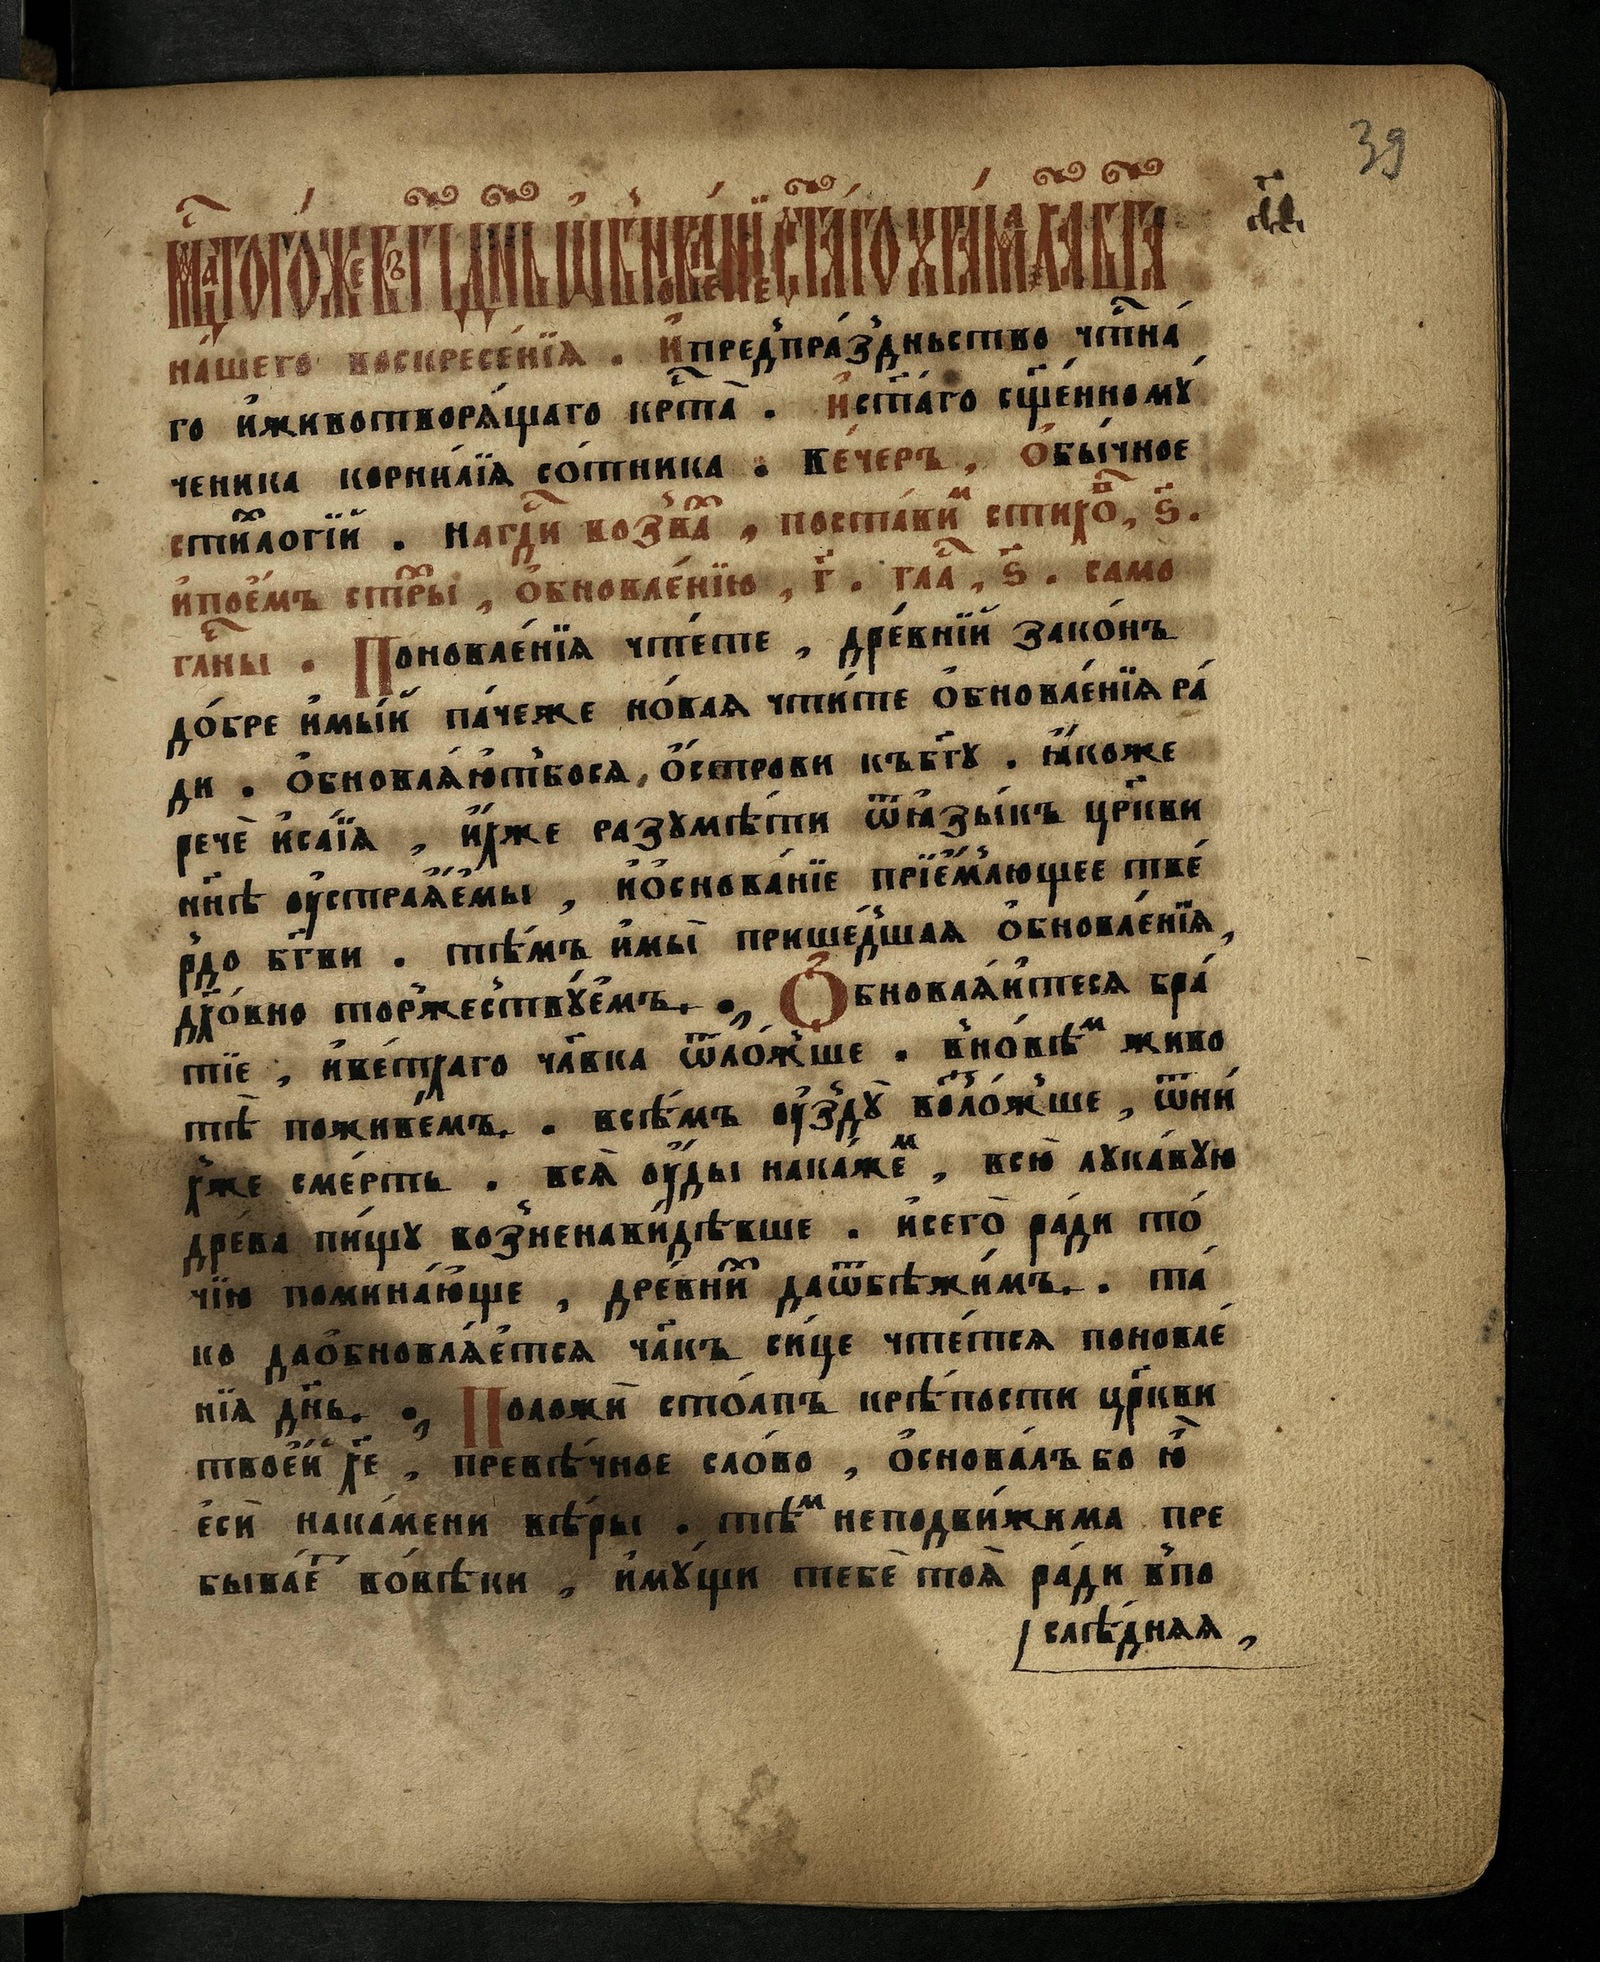 39
мⷭ҇ца тогѡ́же въ г҃і дн҃ь ѡ҆бнᲂвле́нїе ст҃а́гѡ хра́ма хрⷭ҇та̀ бг҃а
на́шего воскресе́нїѧ . И҆предпра́здньство чтⷭ҇на́
го и҆животворѧ́щаго крⷭ҇та̀ . и҆ст҃а́го сщ҃е́нномꙋ́
ченика корни́лїѧ со́тника . ве́черъ , Ѻ҆бы́чное
стиⷯлогїй . нагдⷭ҇и возва́ⷯ , поста́виⷨ стихо́ⷡ , ѕ҃ .
и҆пое́мъ стⷯры , ѻ҆бновле́нїю , г҃ . глаⷭ҇ , ѕ҃ . само
глⷭ҇ны . Поновле́нїѧ чте́те , дре́внїй зако́нъ
до́бре и҆мы́й па́чеже но́ваѧ чти́те ѻ҆бновле́нїѧ ра́
ди . ѻ҆бновлѧ́ютбосѧ , ѻ҆́строви къбг҃ꙋ . ꙗ҆́коже
речѐ и҆са́їѧ , и҆́хже разꙋмѣ́ти ѿꙗ҆зы́къ цр҃кви
нн҃ѣ оу҆страѧ́емы , и҆ѻ҆снова́нїе прїе́млющее тве́
рдо бг҃ви . тѣ́мъ и҆мы̀ прише́дшаѧ ѻ҆бновле́нїѧ ,
дх҃о́вно торже́ствꙋ́емъ . , Ѻ҆бновлѧ́йтесѧ бра́
тїе , и҆ве́тхаго чл҃вка ѿло́жше . вно́вѣⷨ живо
тѣ̀ поживе́мъ . всѣ́мъ оу҆здꙋ̀ воⷥло́жше , ѿни́
хже сме́рть . всѧ̀ оу҆́ды нака́жеⷨ , всю̀ лꙋка́вꙋю
дре́ва пи́щꙋ возненави́дѣвше . и҆сего̀ ра́ди то́
чїю помина́юще , дре́вниⷯ даѿбѣжи́мъ . та́
ко даѻ҆бновлѧ́етсѧ чл҃къ си́це чте́тсѧ поновле́
нїѧ дн҃ь . , Положѝ сто́лпъ крѣ́пости цр҃кви
твое́й хе҃ , превѣ́чное сло́во , ѻ҆снова́лъ бо ю҆̀
е҆сѝ нака́мени вѣ́ры . тѣⷨ неподви́жима пре
быва́еⷮ во́вѣки , и҆мꙋ́щи тебѐ тоѧ̀ ра́ди впо
слѣ́днѧѧ ,